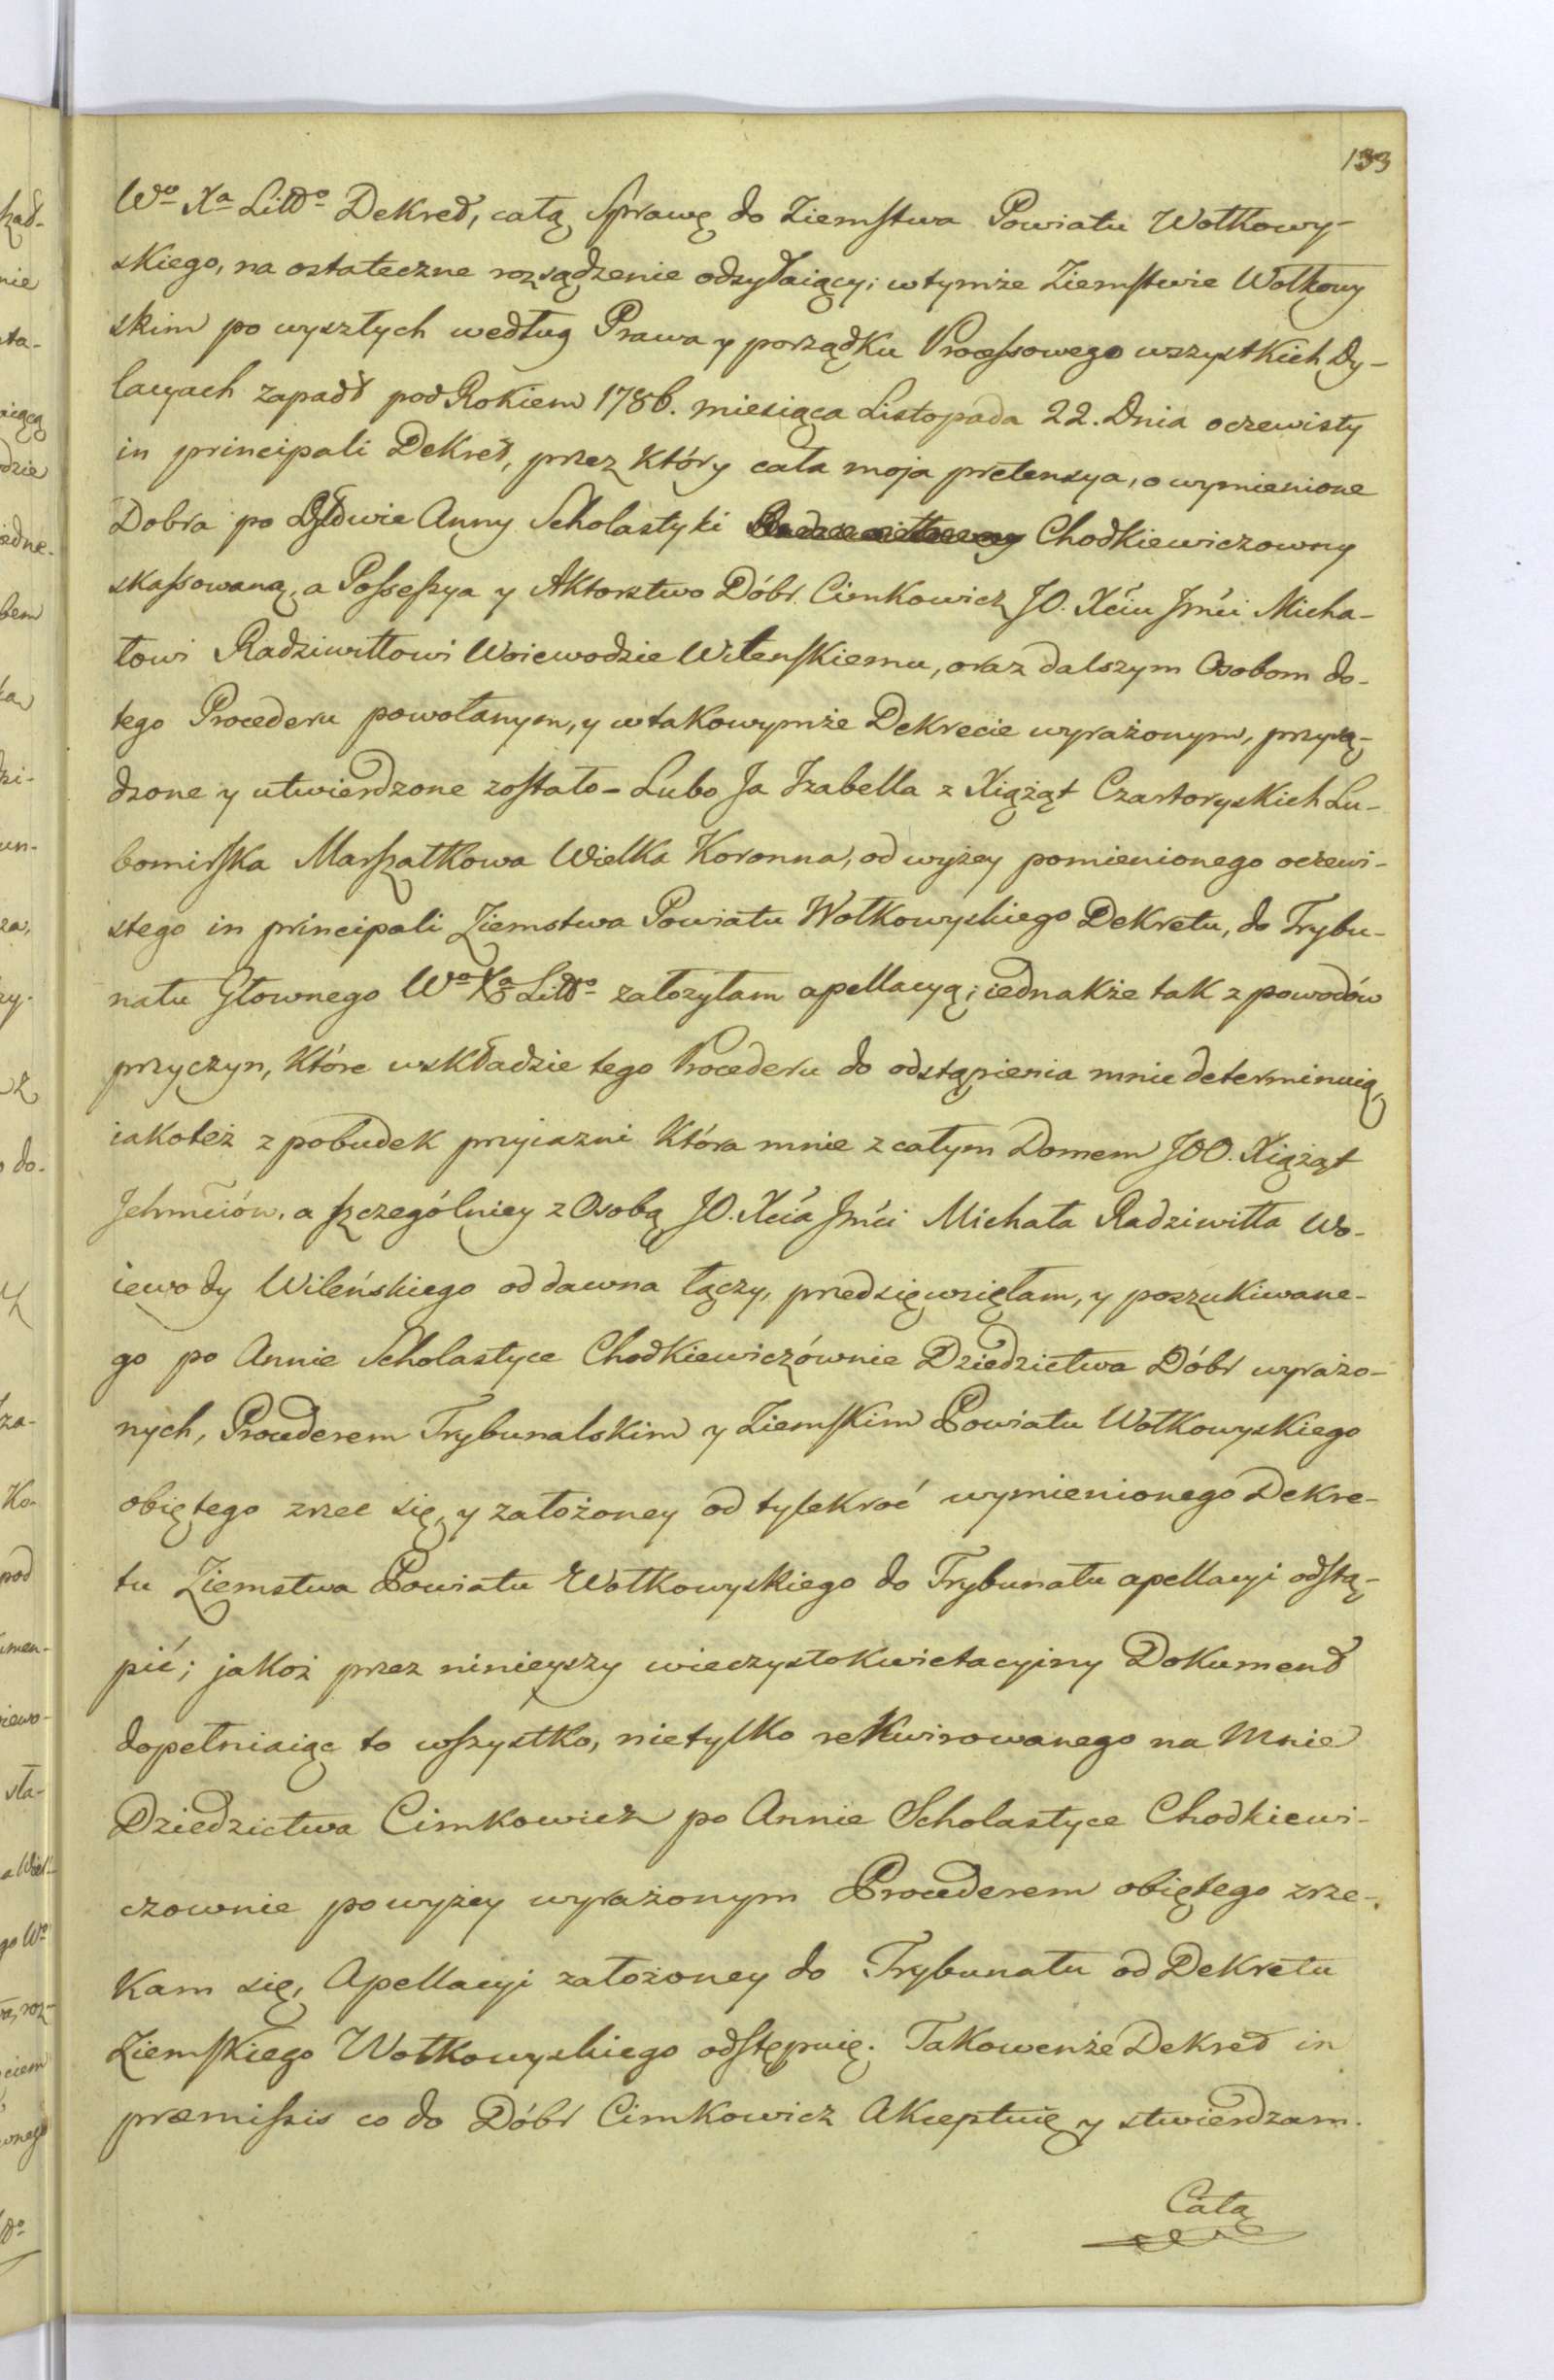 133
Wo Xa Litto Dekret, całą Sprawę do Ziemstwa Powiatu Wołkowy-
skiego, na ostateczne rozsądzenie odsyłaiący; w tymże Ziemstwie Wołkowy
skim po wyszłych według Prawa y porządku Processowego wszystkich Dy-
lacyach zapadł pod Rokiem 1786. miesiąca Listopada 22. Dnia oczewisty
in principali Dekret, przez który cała moja pretensya, o wymienione
Dobra po Anny Scholastyki Chodkiewiczowny
skassowaną, a Possessya y Aktorstwo Dóbr Cimkowicz JO. Xciu Jmći Micha-
łowi Radziwiłłowi Woiewodzie Wileńskiemu, oraz dalszym Osobom do-
tego Procederu powołanym, y w takowymże Dekrecie wyrażonym, przysą-
dzone y utwierdzone zostało - Lubo Ja Izabella z Xiążąt Czartoryskich Lu-
bomirska Marszałkowa Wielka Koronna, od wyżey pomienionego oczewi-
stego in principali Ziemstwa Powiatu Wołkowyskiego Dekretu, do Trybu-
nału Głownego Wo Xa Litto założyłam apellacyą; iednakże tak z powodów
przyczyn, które w składzie tego Procederu do odstąpienia mnie determinuią,
iakoteż z pobudek przyiazni która mnie z całym Domem JOO. Xiążąt
Jehmciów, a szczególniey z Osobą JO. Xcia Jmći Michała Radziwiłła Wo-
iewody Wileńskiego oddawna łączy, przedsięwzięłam, y poszukiwane-
go po Annie Scholastyce Chodkiewiczównie Dziedzictwa Dóbr wyrażo-
nych, Procederem Trybunalskim y Ziemskim Powiatu Wołkowyskiego
obiętego zrzec się, y założoney od tylekroć wymienionego Dekre-
tu Ziemstwa Powiatu Wołkowyskiego do Trybunału apellacyi odstą-
pić; jakoż przez ninieyszy wieczystokwietacyiny Dokument
dopełniaiąc to wszystko, nietylko rekwirowanego na Mnie
Dziedzictwa Cimkowicz po Annie Scholastyce Chodkiewi-
czownie powyżey wyrażonym Procederem obiętego zrze-
kam się, Apellacyi założoney do Trybunału od Dekretu
Ziemskiego Wołkowyskiego odstępuię. Takowenże Dekret in
præmissis co do Dóbr Cimkowicz Akceptuię y stwierdzam.
Całą